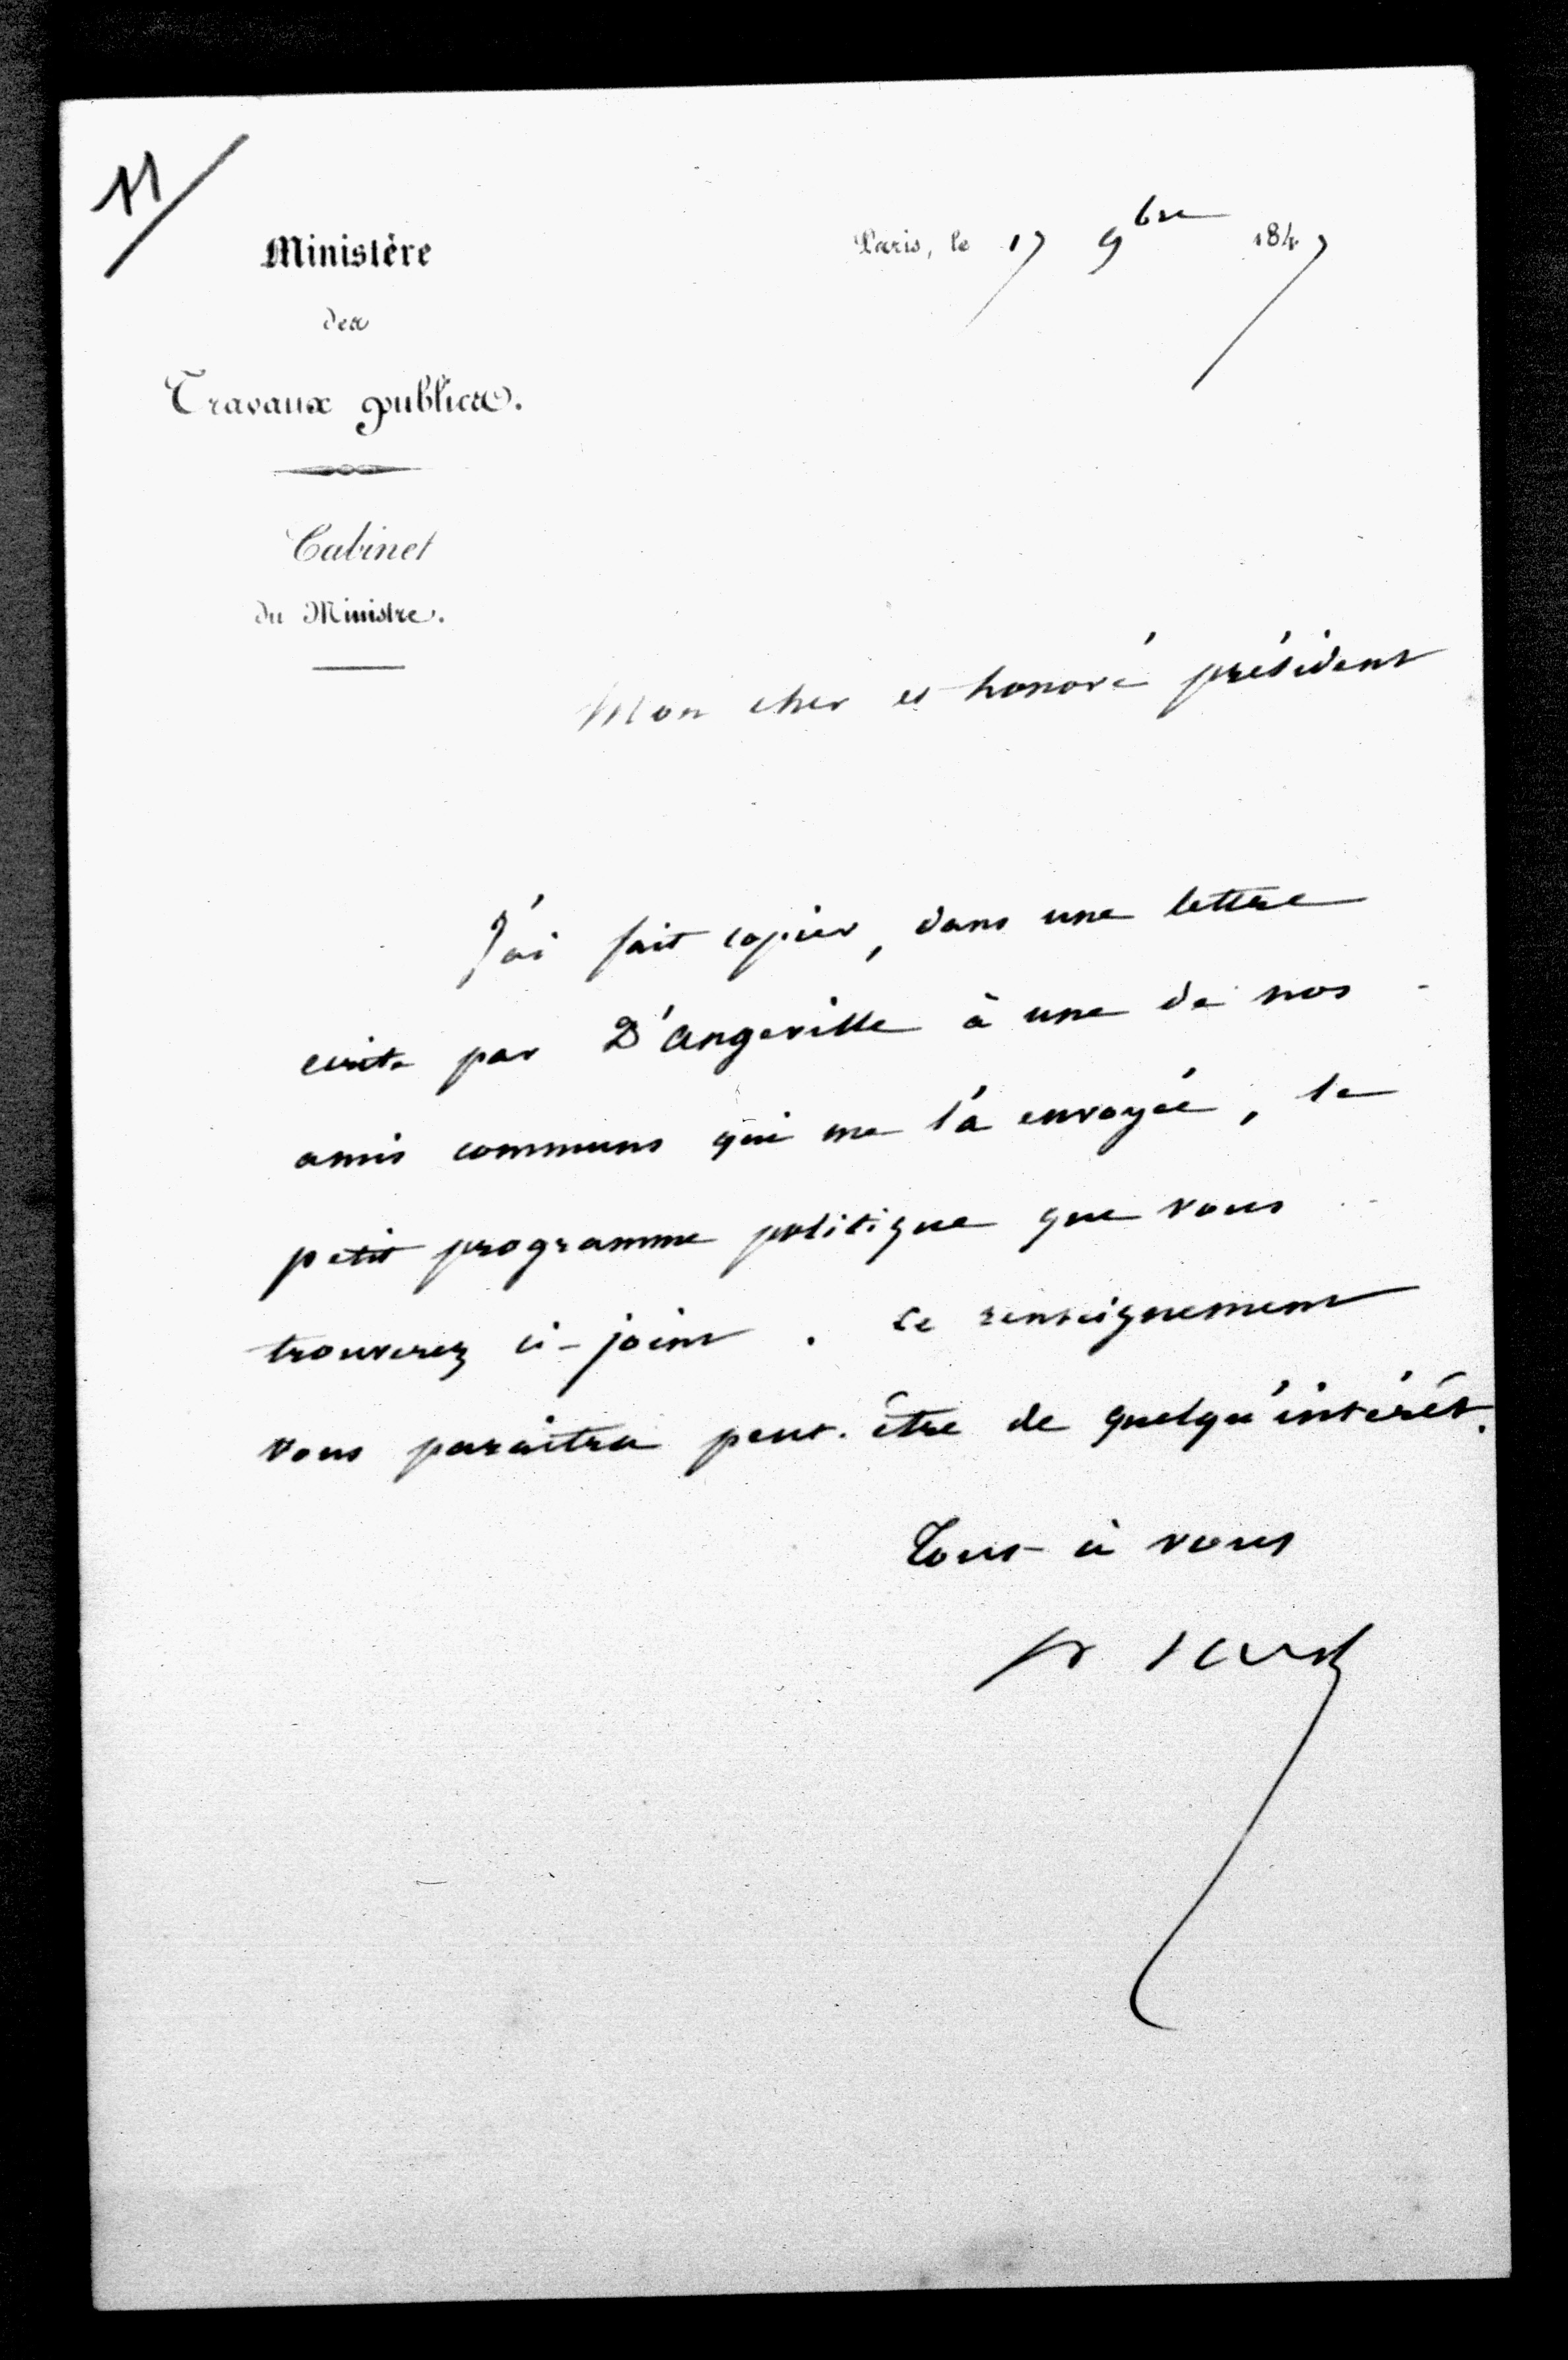 11
Ministère
des
Travaux publics.
Cabinet
du Ministre.
Paris, le 17 9bre 1847
Mon cher et honoré président
J'ai fait copier, dans une lettre
ecrite par D'angeville à une de nos
amis communs qui me l'a envoyée, le
petit programme politique que vous
trouverez ci-joint. Ce renseignement
vous paraitra peut-être de quelqu'intérêt.
Tout à vous